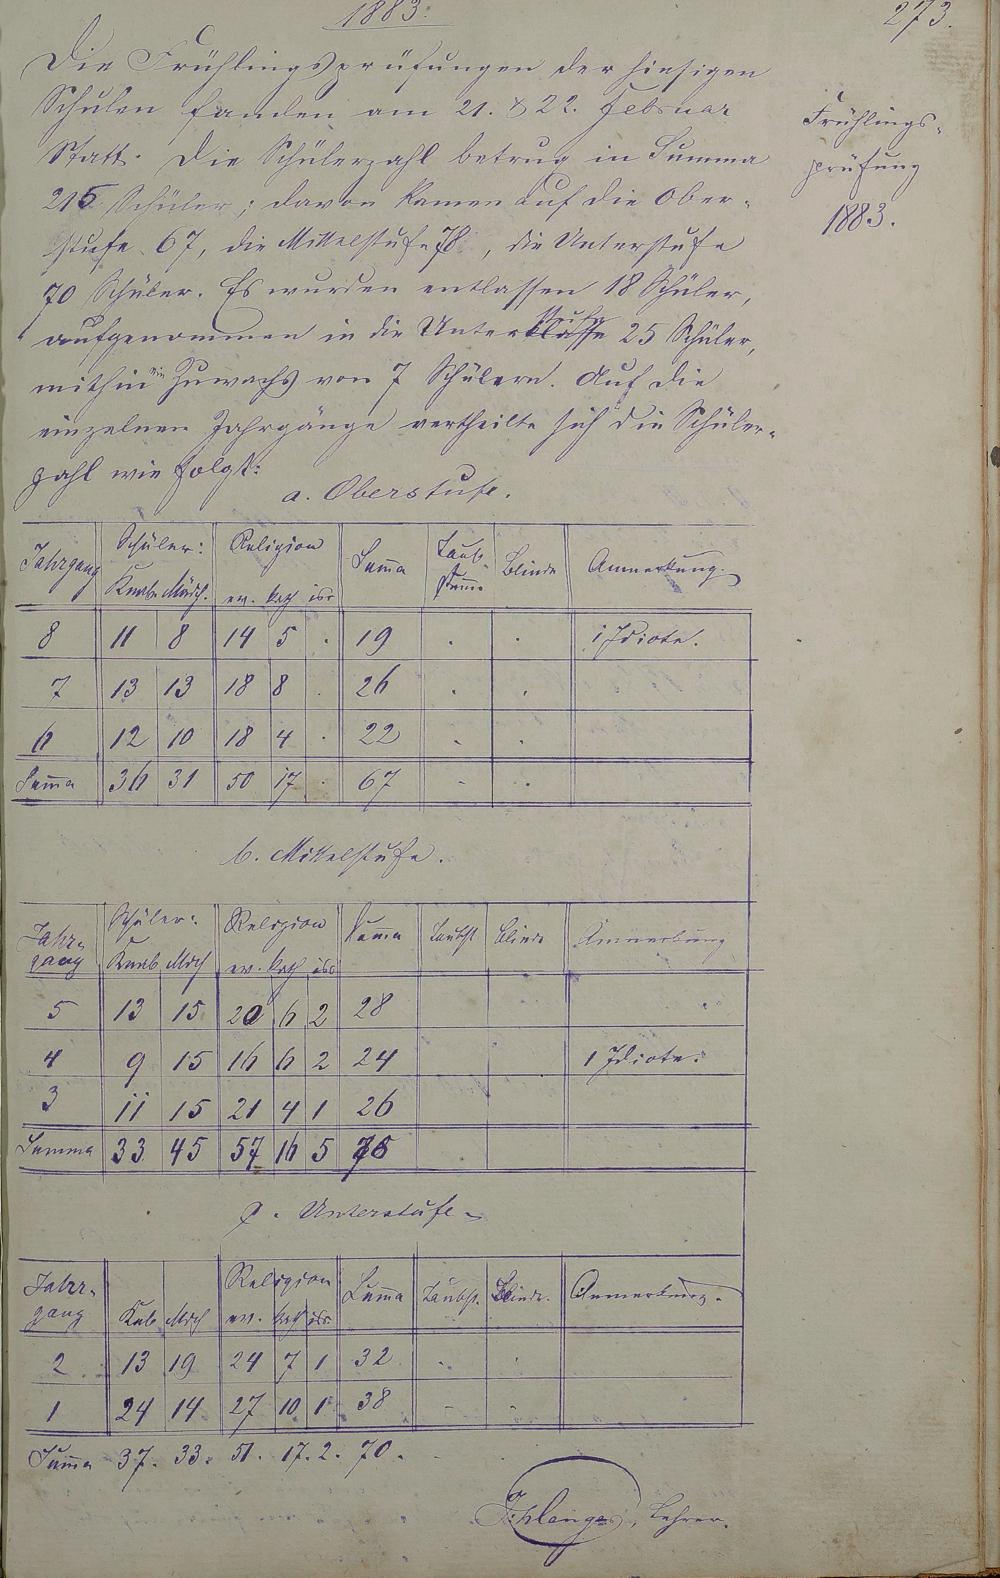 1883.
273.
Die Frühlingsprüfungen der hiesigen
Schulen fanden am 21. & 22. Februar
Statt. Die Schülerzahl betrug in Summa
215 Schüler; davon kamen auf die Ober-
stufe 67, die Mittelstufe 78, die Unterstufe
70 Schüler. Es wurden entlassen 18 Schüler,
aufgenommen in die Unterklasse stufe 25 Schüler,
mithin ein Zuwachs von 7 Schülern. Auf die
einzelnen Jahrgänge vertheilte sich die Schüler-
zahl wie folgt:
Frühlings-
prüfung
1883.
a. Oberstufe.
Jahrgang Schüler: Religion Summa Taub- Blinde Anmerkung.
Knab. Mädch. ev. kath isr stumme
8 11 8 14 5 . 19 . . 1 Idiote.
7 13 13 18 8 . 26 . .
6 12 10 18 4 . 22 . .
Summa 36 31 50 17 . 67 . .
b. Mittelstufe.
Jahr- Schüler: Religion Summa Taubst Blinde Anmerkung
gang Knab Mdch ev. kath isr
5 13 15 20 6 2 28
4 9 15 16 6 2 24 1 Idiote.
3 11 15 21 4 1 26
Summa 33 45 57 16 5 78
c. Unterstufe.
Jahr- Religion Summa Taubst. Blinde. Anmerkung.
gang Knb Mdch ev. kath isr
2 13 19 24 7 1 32 . .
1 24 14 27 10 1 38 . .
Summa 37. 33. 51. 17. 2. 70.
Lehrer.